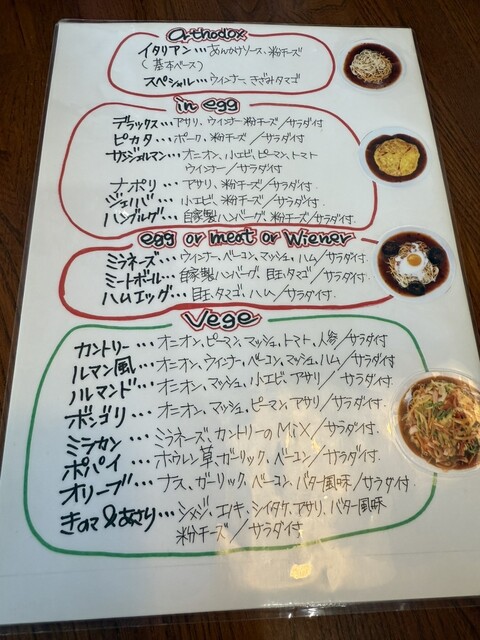 Orthodox
イタリアン…あんかけソース、粉チーズ
(基本ベース)
スペシャル…ウィンナー、きざみタマゴ
in egg
デラックス…アサリ、ウインナー粉チーズ/サラダ付
ピカタ…ポーク、粉チーズ/サラダ付
サンジェルマン…オニオン、小エビ、ピーマン、トマト
ウインナー/サラダ付
ナポリ…アサリ、粉チーズ/サラダ付.
ジェノバ…小エビ、粉チーズ/サラダ付.
ハンブルグ…自家製ハンバーグ、粉チーズ/サラダ付.
egg or meat or Wiener
ミラネーズ…ウィンナー、ベーコン、マッシュ、ハム/サラダ付.
ミートボール…自家製ハンバーグ、目玉、タマゴ/サラダ付.
ハムエッグ…目玉、タマゴ、ハム/サラダ付.
Vege
カントリー…オニオン、ピーマン、マッシュ、トマト、人参/サラダ付
ルマン風…オニオン、ウィンナー、ベーコン、マッシュ、ハム/サラダ付.
ノルマンド…オニオン、マッシュ、小エビ、アサリ/サラダ付
ボンゴリ…オニオン、マッシュ、ピーマン、アサリ/サラダ付.
ミラカン…ミラネーズ、カントリーのMIX/サラダ付.
ポパイ…ホウレン草、ガーリック、ベーコン/サラダ付.
オリーブ…ナス、ガーリック、ベーコン、バター風味/サラダ付.
きのこ&あさり…シメジ、エノキ、シイタケ、アサリ、バター風味
粉チーズ/サラダ付